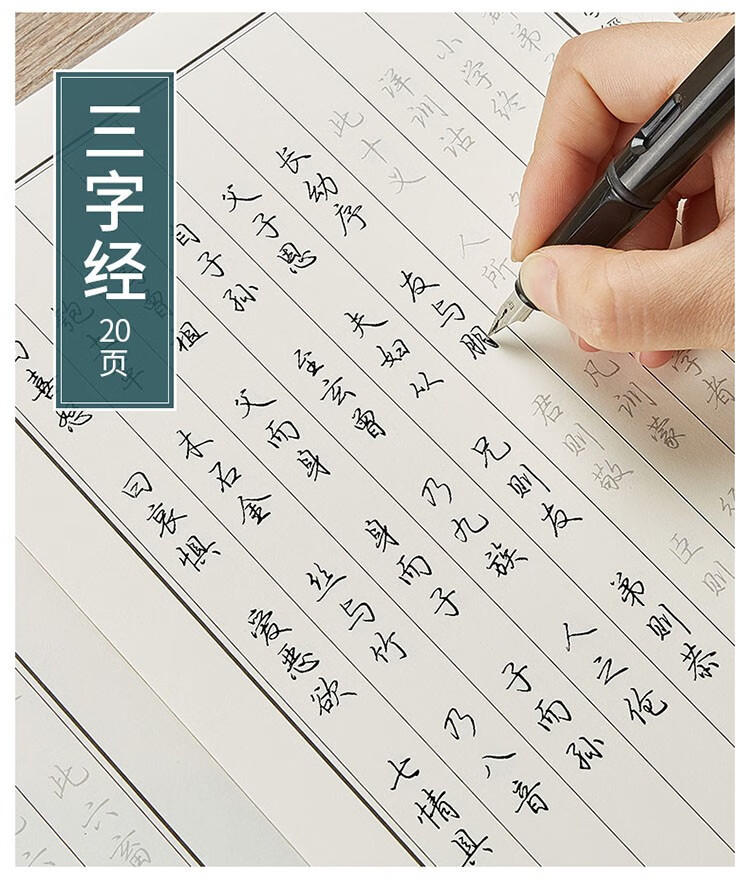 三字经
20页
弟子
小学终
详训诂
学者
此十义
人所
凡训蒙
长幼序
友与朋
君则敬
臣则
父子恩
夫妇从
兄则友
弟则恭
自子孙
至玄曾
乃九族
人之伦
父而身
身而子
子而孙
木石金
丝与竹
乃八音
曰喜怒
曰哀惧
爱恶欲
七情具
此六畜